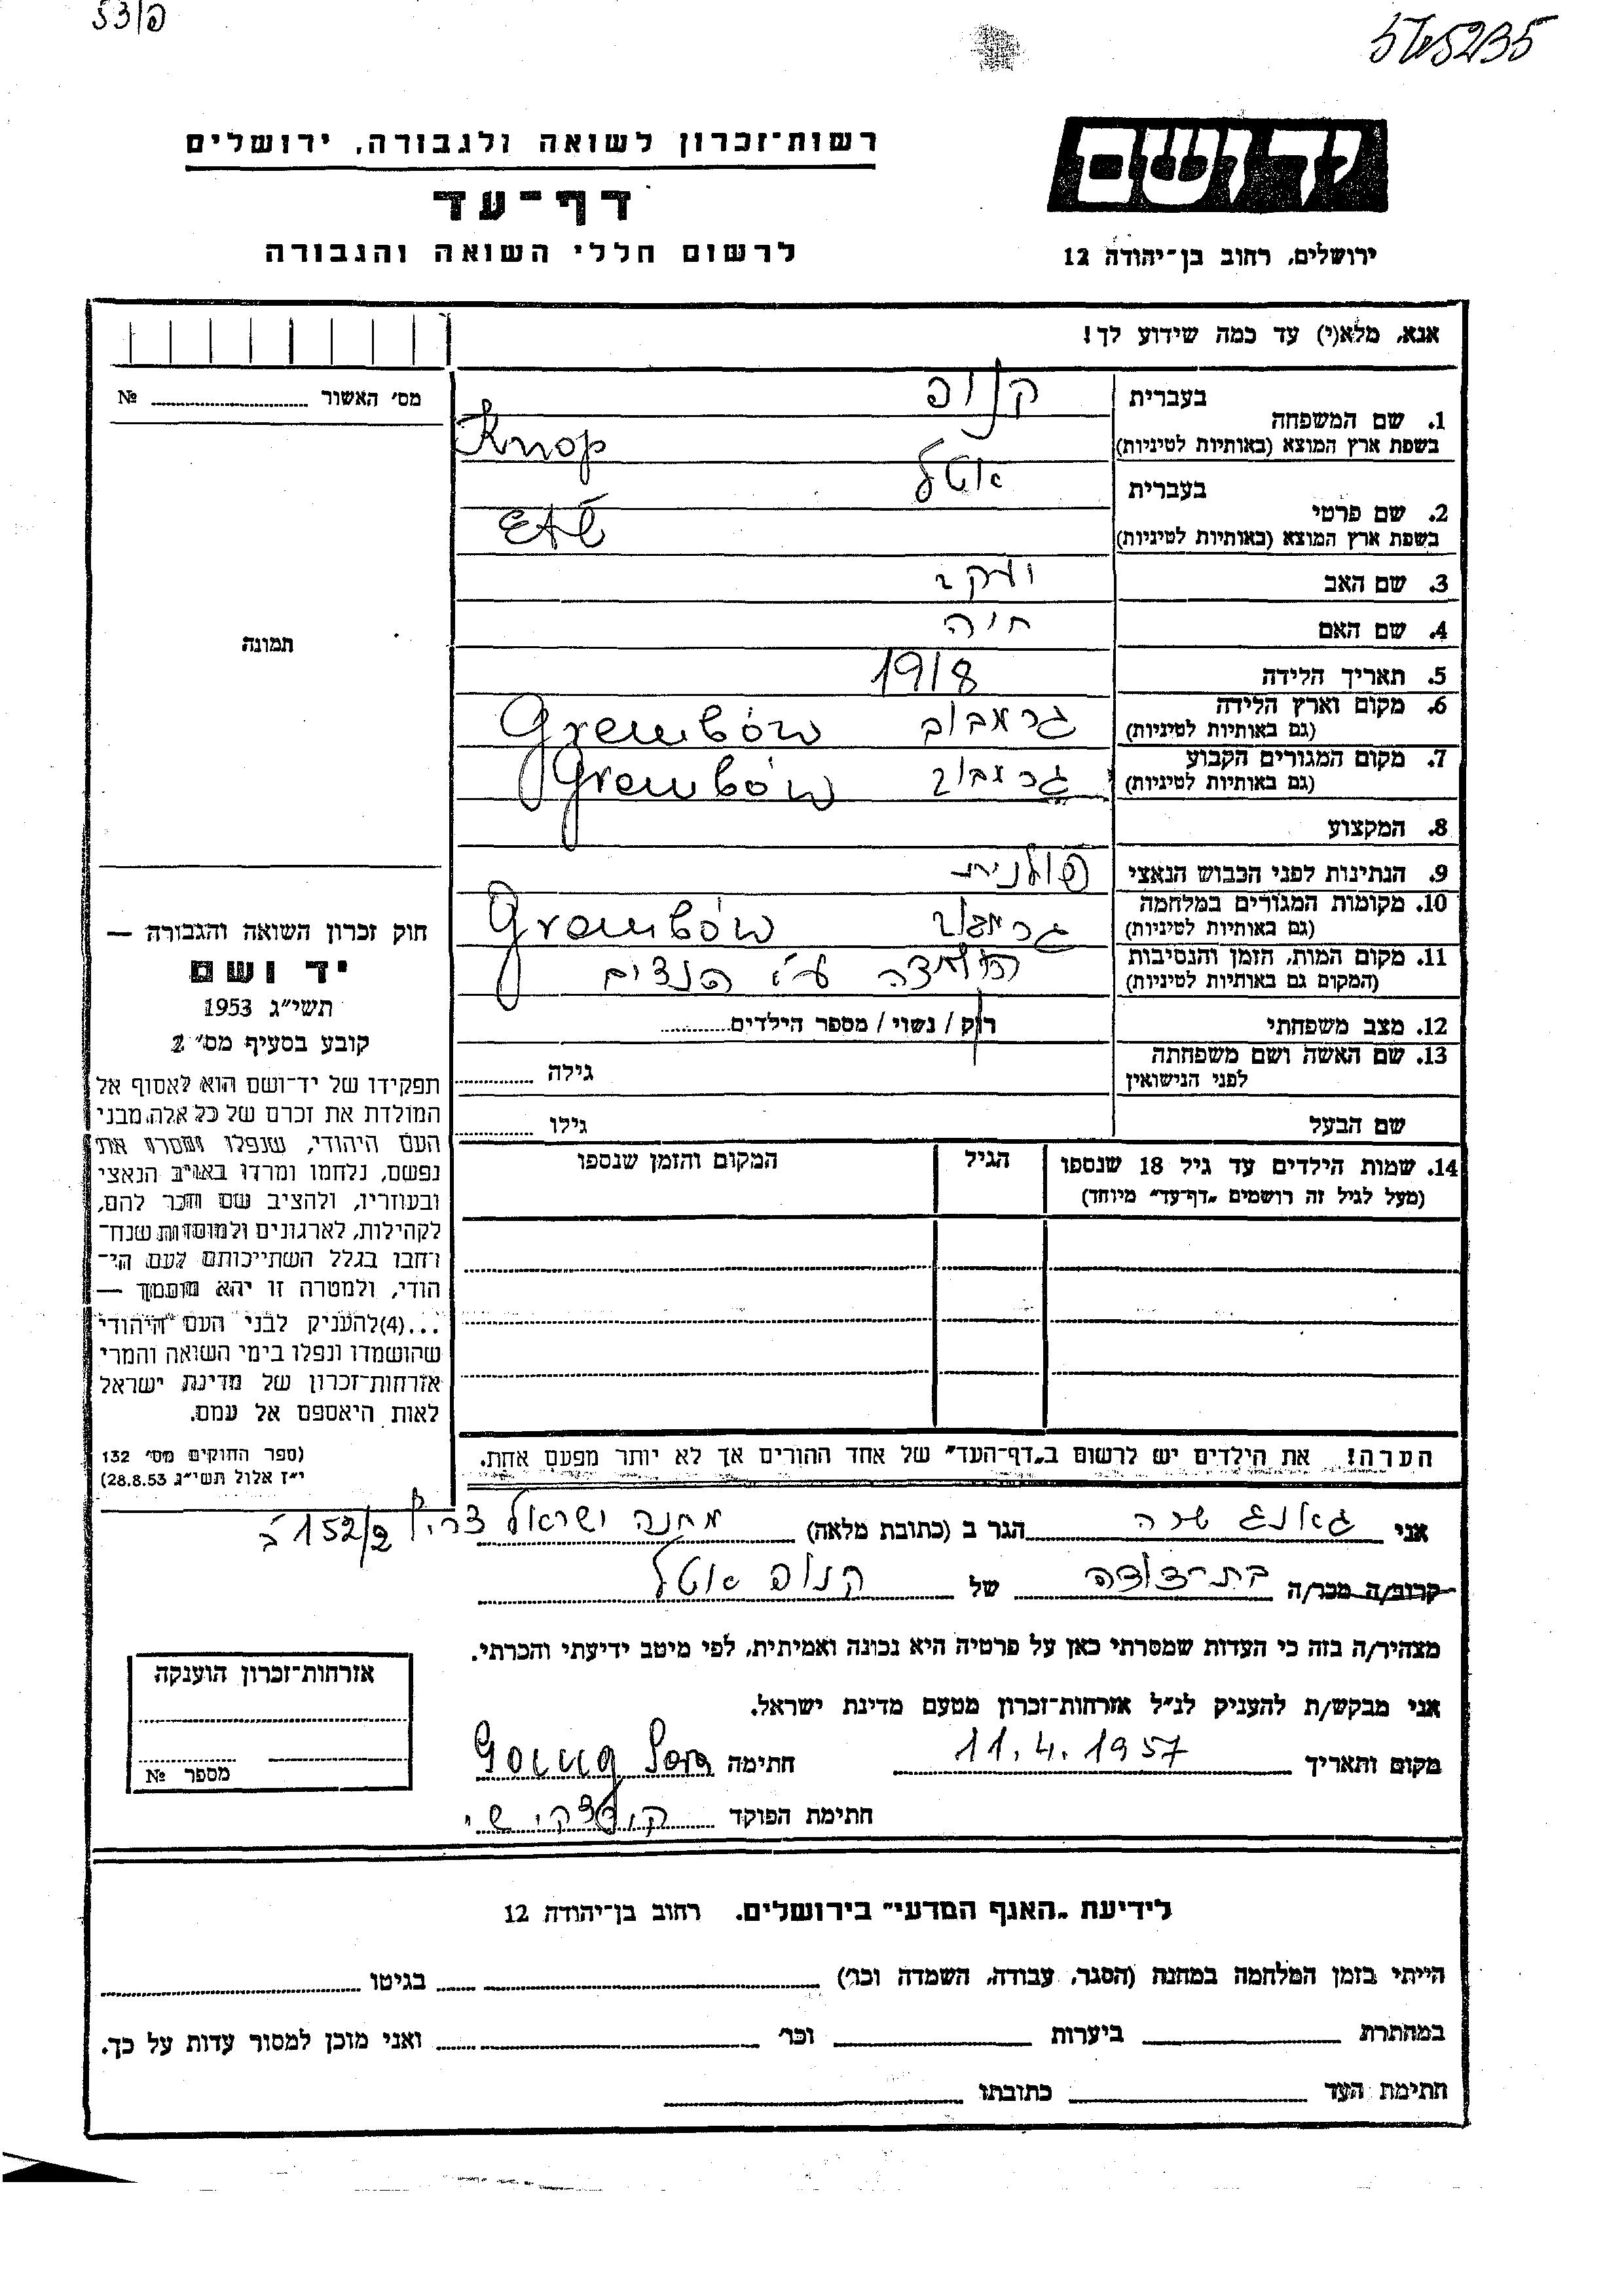 פ/53
רשות־זכרון לשואה ולגבורה, ירושלים
דף־עד
לרשום חללי השואה והגבורה
יד ושם
ירושלים, רחוב בן־יהודה 12
אנא, מלא(י) עד כמה שידוע לך!
מס׳ האשור №
1. שם המשפחה
בעברית קנופ
בשפת ארץ המוצא (באותיות לטיניות) Knop
2. שם פרטי
בעברית אטל
בשפת ארץ המוצא (באותיות לטיניות)
3. שם האב
4. שם האם חיה
5. תאריך הלידה 1918
6. מקום וארץ הלידה (גם באותיות לטיניות) גרמבוב Grembów
7. מקום המגורים הקבוע (גם באותיות לטיניות) גרמבוב Grembów
8. המקצוע
9. הנתינות לפני הכבוש הנאצי פולנית
10. מקומות המגורים במלחמה (גם באותיות לטיניות) גרמבוב Grembów
11. מקום המות, הזמן והנסיבות (המקום גם באותיות לטיניות) הושמדה ע״י הנצים
12. מצב משפחתי רוק / נשוי / מספר הילדים
13. שם האשה ושם משפחתה לפני הנישואין גילה
שם הבעל גילו
14. שמות הילדים עד גיל 18 שנספו
(מעל לגיל זה רושמים „דף־עד״ מיוחד)
הגיל
המקום והזמן שנספו
הערה! את הילדים יש לרשום ב„דף־העד״ של אחד ההורים אך לא יותר מפעם אחת.
תמונה
חוק זכרון השואה והגבורה —
יד ושם
תשי״ג 1953
קובע בסעיף מס׳ 2
תפקידו של יד־ושם הוא לאסוף אל
המולדת את זכרם של כל אלה מבני
העם היהודי, שנפלו ומסרו את
נפשם, נלחמו ומרדו באויב הנאצי
ובעוזריו, ולהציב שם וזכר להם,
לקהילות, לארגונים ולמוסדות שנח־
רחבו בגלל השתייכותם לעם הי־
הודי, ולמטרה זו יהא מוסמך —
...(4)להעניק לבני העם היהודי
שהושמדו ונפלו בימי השואה והמרי
אזרחות־זכרון של מדינת ישראל
לאות היאספם אל עמם.
(ספר החוקים מס׳ 132
י״ז אלול תשי״ג 28.8.53)
אני גאנג שרה הגר ב (כתובת מלאה) מחנה ישראל צריף 152/2
קרוב/ה מכר/ה בת־דודה של קנופ אטל
מצהיר/ה בזה כי העדות שמסרתי כאן על פרטיה היא נכונה ואמיתית, לפי מיטב ידיעתי והכרתי.
אני מבקש/ת להעניק לנ״ל אזרחות־זכרון מטעם מדינת ישראל.
מקום ותאריך 11.4.1957 חתימה Goung Sara
חתימת הפוקד
אזרחות־זכרון הוענקה
מספר №
לידיעת „האגף המדעי״ בירושלים. רחוב בן־יהודה 12
הייתי בזמן המלחמה במחנה (הסגר, עבודה, השמדה וכר׳) בגיטו
במחתרת ביערות וכר׳ ואני מוכן למסור עדות על כך.
חתימת העד כתובתו